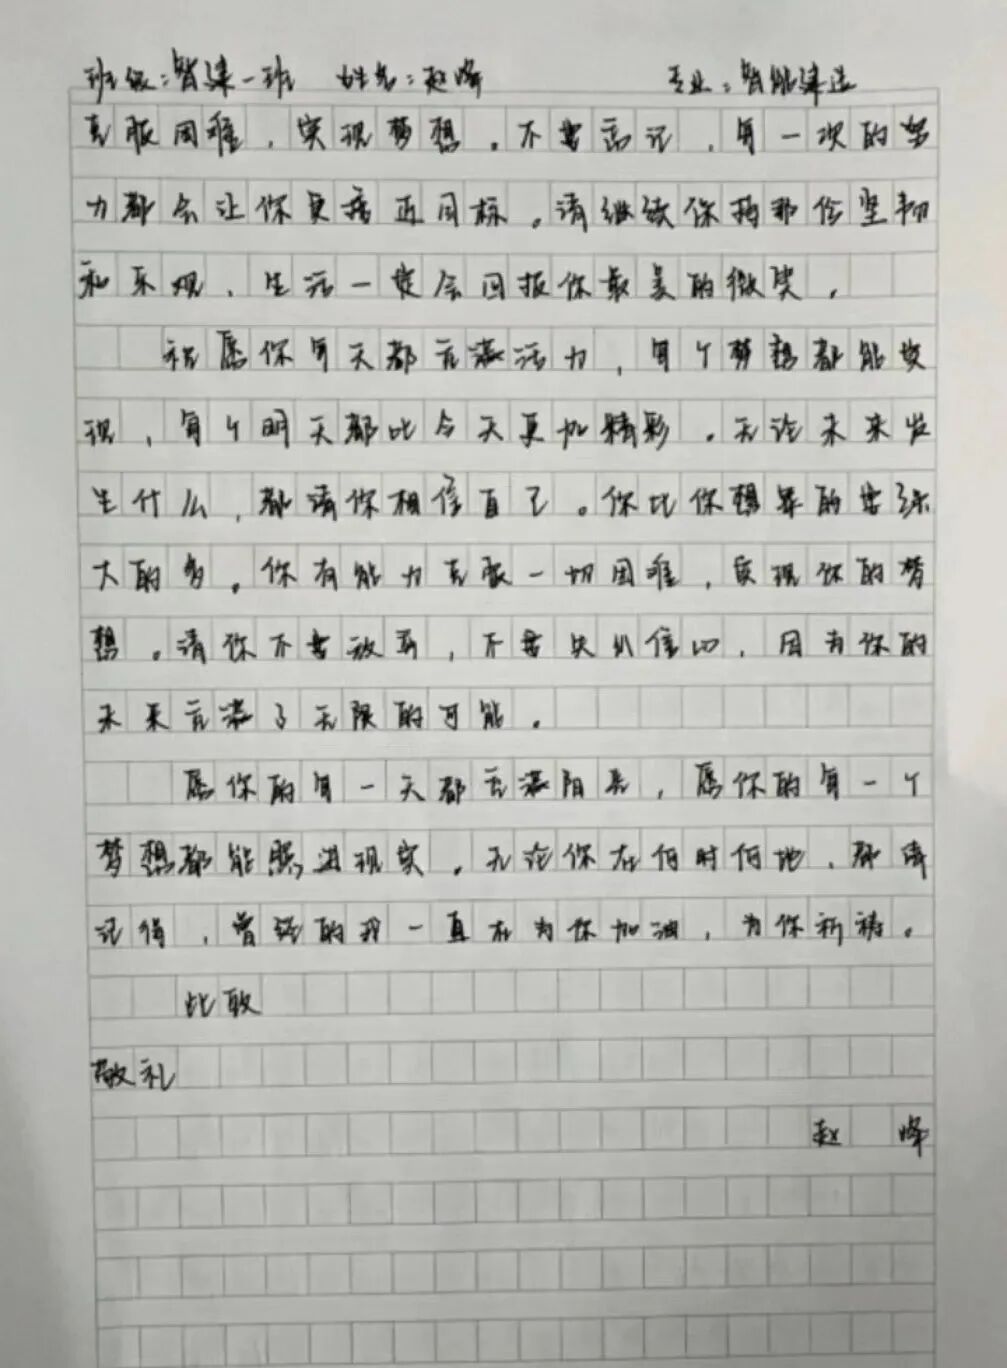 班级：智建一班 姓名：赵峰 专业：智能建造
克服困难，实现梦想。不要忘记，每一次的努
力都会让你更接近目标。请继续保持那份坚韧
和乐观，生活一定会回报你最美的微笑。
祝愿你每天都充满活力，每个梦想都能实
现，每个明天都比今天更加精彩。无论未来发
生什么，都请你相信自己。你比你想象的要强
大的多。你有能力克服一切困难，实现你的梦
想。请你不要放弃，不要失从信心，因为你的
未来充满了无限的可能。
愿你的每一天都充满阳光，愿你的每一个
梦想都能照进现实。无论你在何时何地，都请
记得，曾经的我一直在为你加油，为你祈祷。
此致
敬礼
赵峰